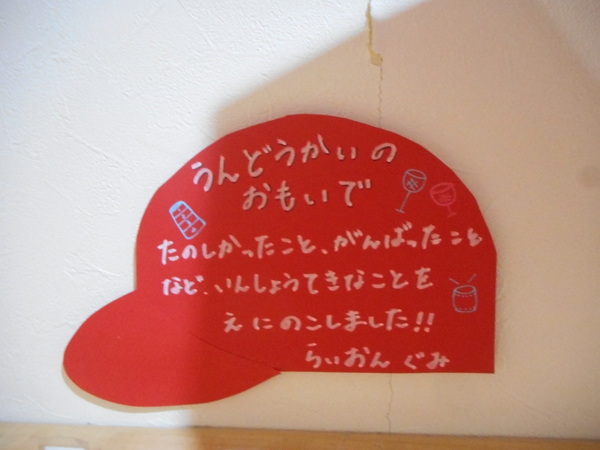 うんどうかいの
おもいで
たのしかったこと、がんばったこと
など、いんしょうてきなことを
えにのこしました!!
らいおん ぐみ